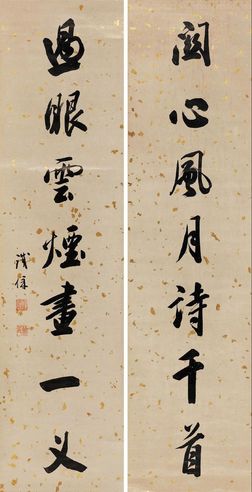 關心風月詩千首
過眼雲煙畫一叉